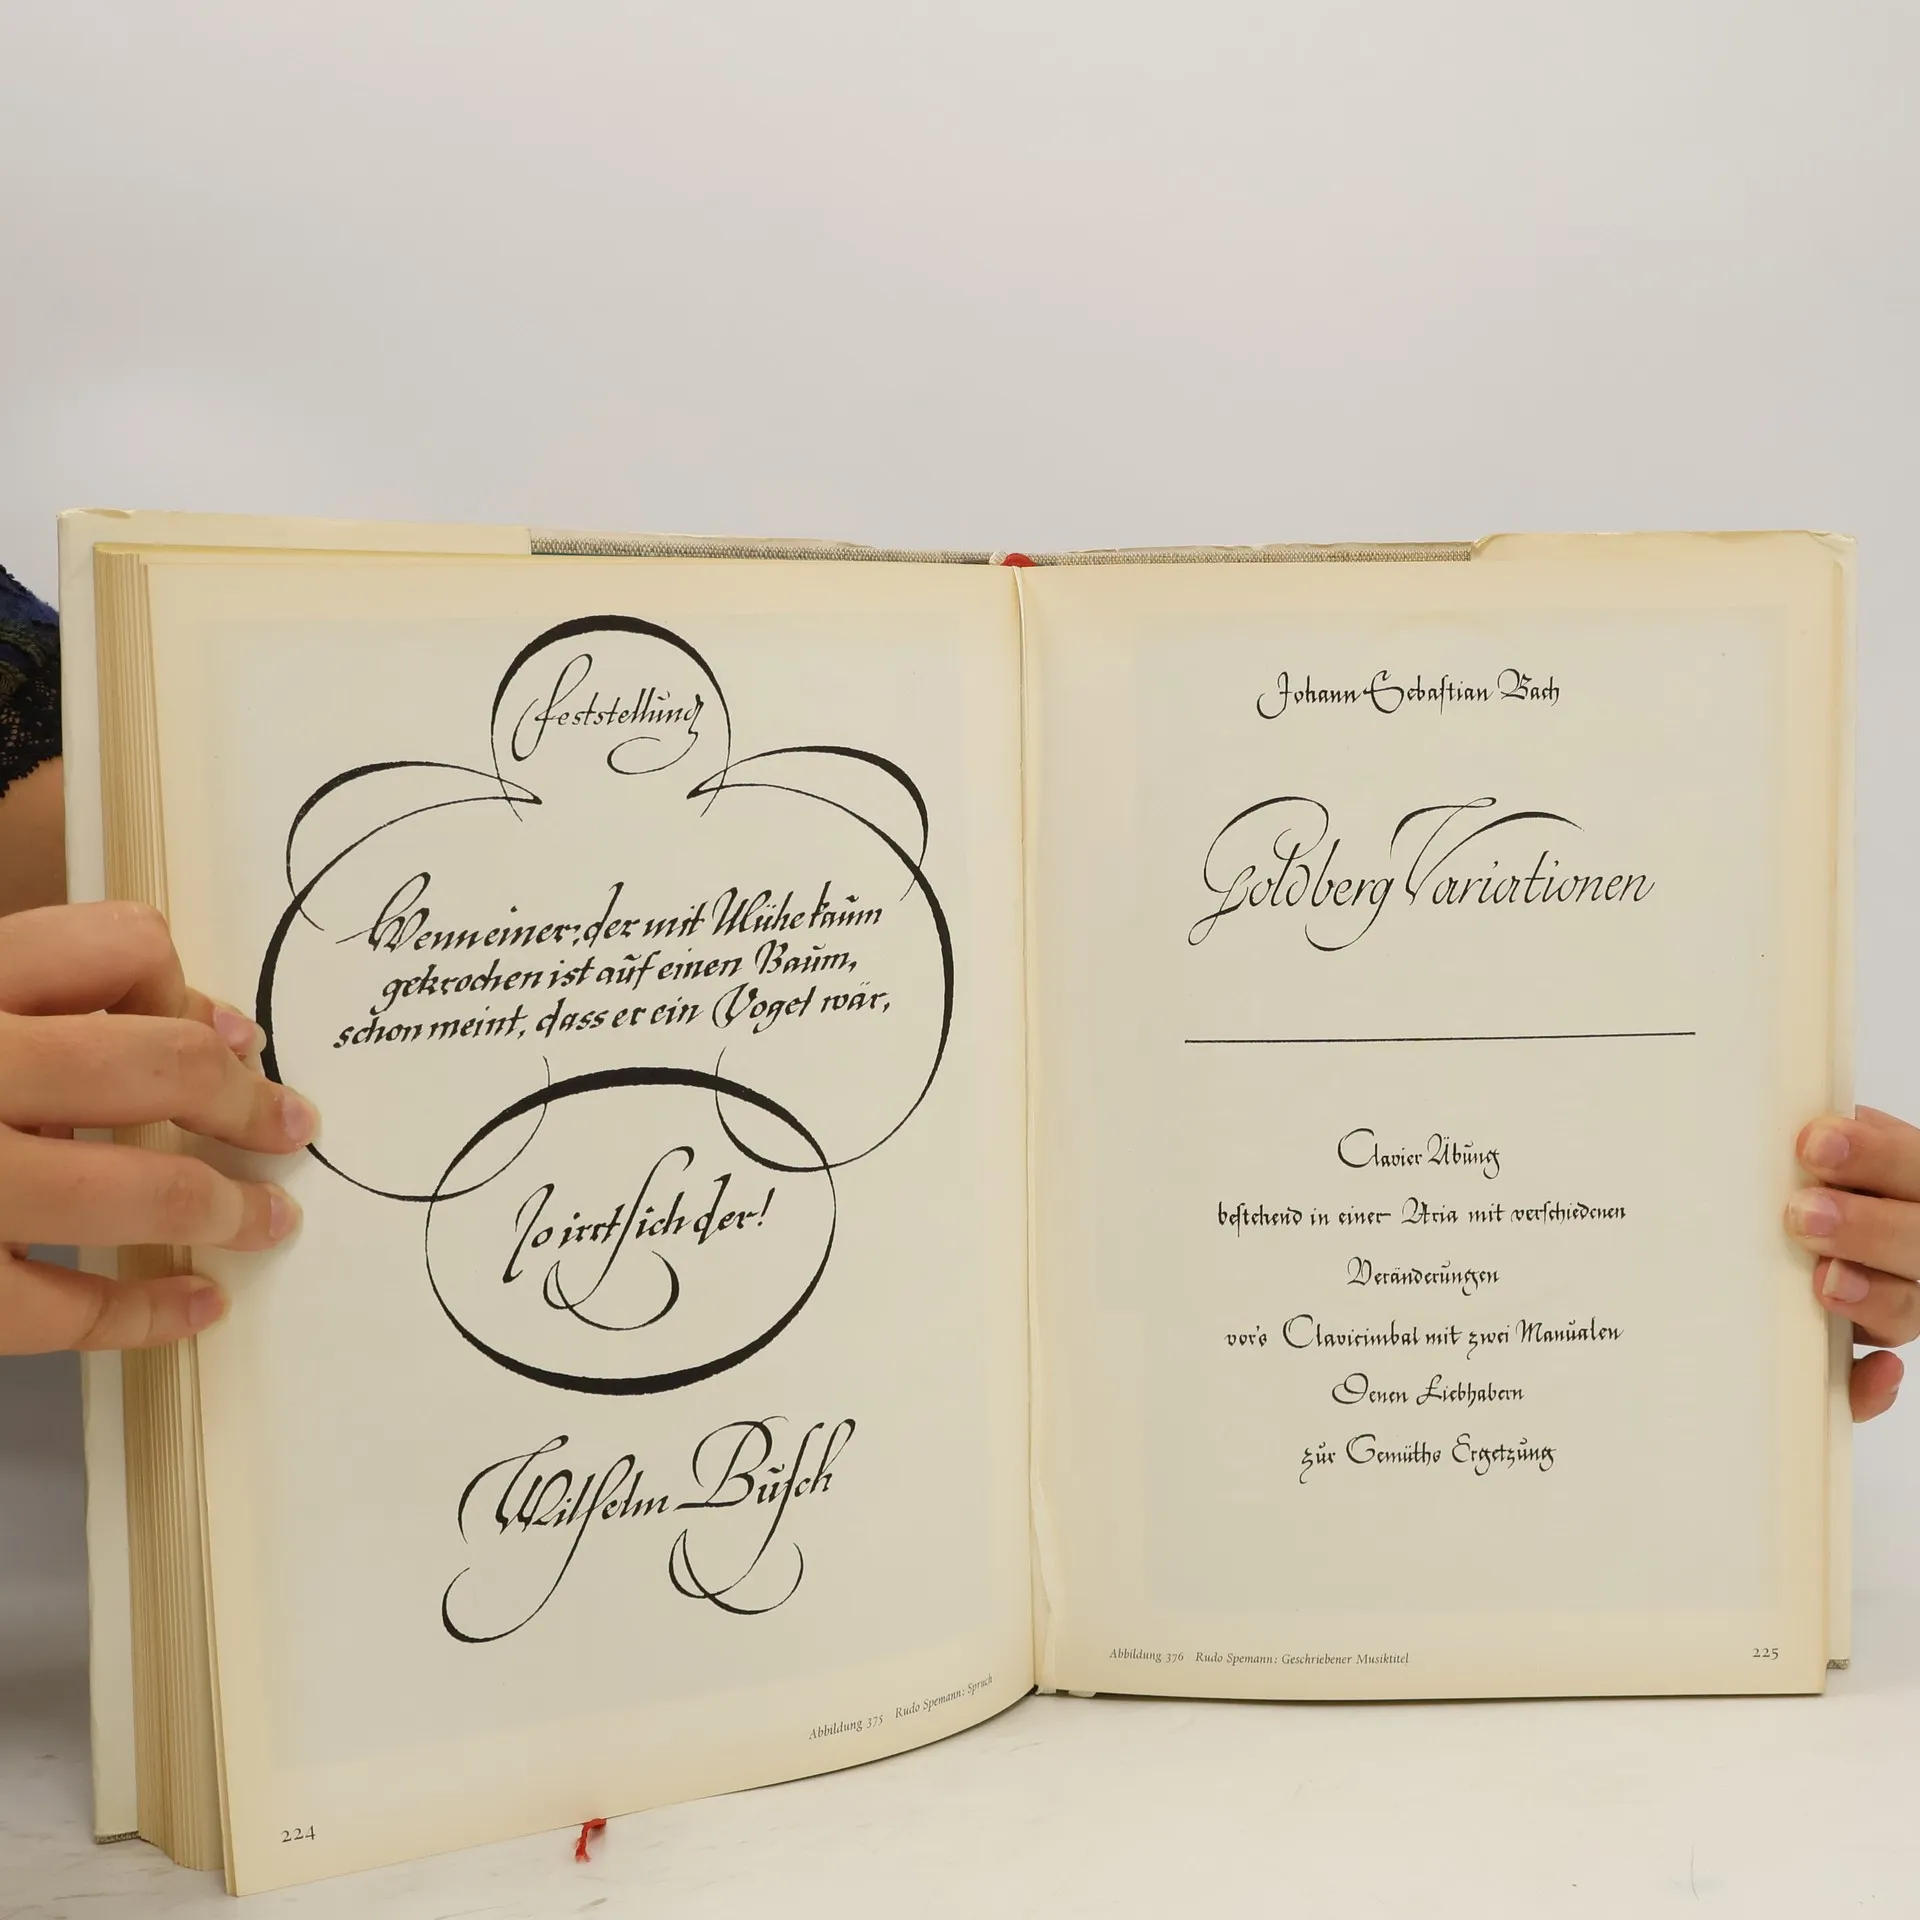 Feststellung
Wenn einer, der mit Mühe kaum
gekrochen ist auf einen Baum,
schon meint, dass er ein Vogel wär,
So irrt sich der!
Wilhelm Busch
Abbildung 375 Rudo Spemann: Spruch
224
Johann Sebastian Bach
Goldberg Variationen
Clavier Übung
bestehend in einer Aria mit verschiedenen
Veränderungen
vor's Clavicimbal mit zwei Manualen
Denen Liebhabern
zur Gemüths Ergetzung
Abbildung 376 Rudo Spemann: Geschriebener Musiktitel
225